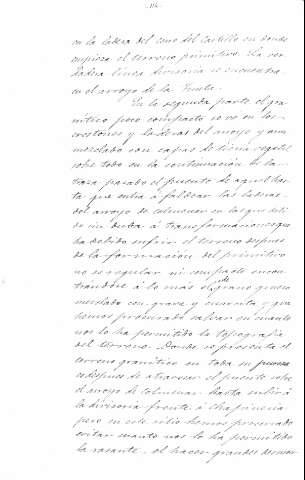 en la ladera del cerro del Castillo en donde
empieza el terreno primitivo. La ver
dadera linea divisoria se encuentra
en el arroyo de la Fuente.
En la segunda parte el gra
nítico poco compacto se ve en los
crestones y laderas del arroyo y aun
mezclado con capas de tierra vegetal
sobre todo en la continuacion de la
traza pasado el puente de aquel has
ta que entra á faldear las laderas
del arroyo de colmenar en las que
sin duda á transformaciones que
ha debido sufrir el terreno despues
de la formacion del primitivo
no es regular ni compacto encon
trandose á lo mas el grano grueso
mezclado con grava y que
hemos procurado salvar en cuanto
nos lo ha permitido la topografia
del terreno. Donde se presenta el
terreno granitico en toda su pureza
es despues de atravesar el puente sobre
el arroyo de colmenar hasta subir á
la divisoria frente á Chapineria
pero en este sitio hemos procurado
evitar cuanto nos lo ha permitido
la rasante, el hacer grandes desmon